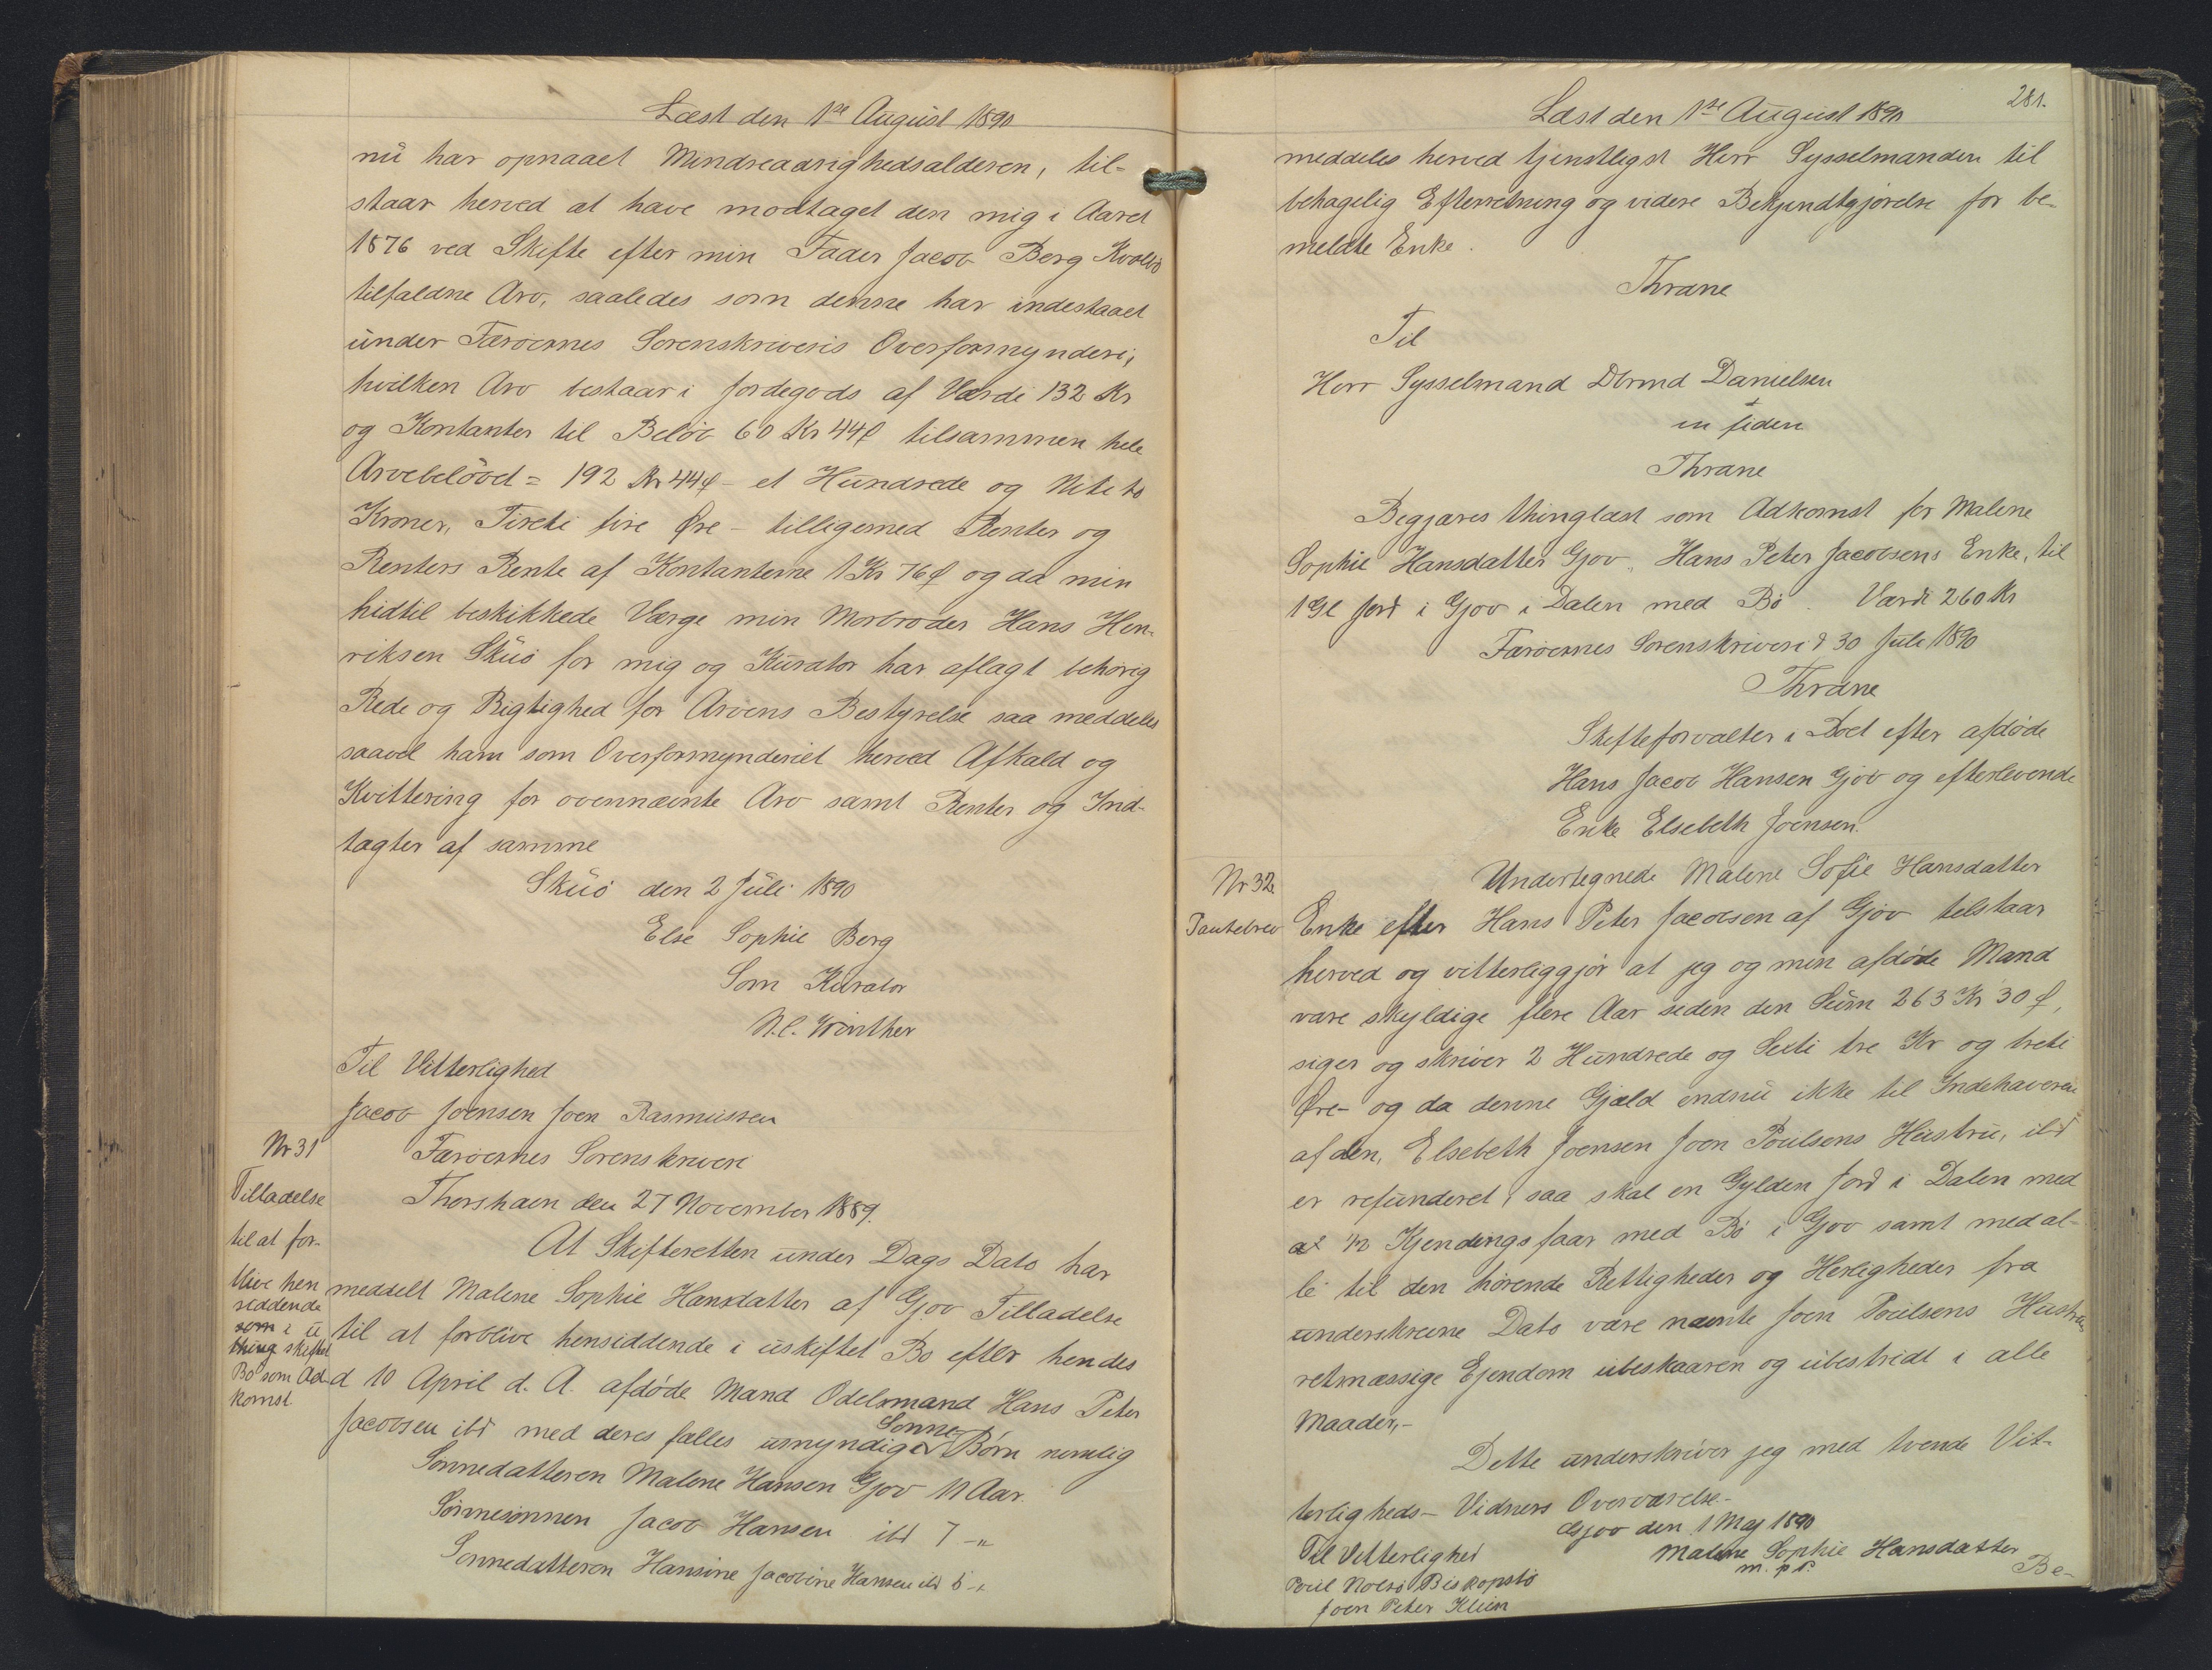 Læst den 1ste August 1890
nu har opnaaet Mindreaarighedsalderen, til-
staar herved at have modtaget den mig i Aaret
1876 ved Skifte efter min Fader Jacob Berg Kvalbø
tilfaldne Arv, saaledes som denne har indestaaet
under Færøernes Sorenskriveris Overformynderi,
hvilken Arv bestaar i Jordegods af Værdi 132 Kr
og Kontanter til Beløb 60 Kr 44 Ø tilsammen hele
Arvebeløbet = 192 Kr 44 Ø - et Hundrede og Niti to
Kroner, Fireti fire Øre - tilligemed Renter og
Renters Rente af Kontanterne 1 Kr 76 Ø og da min
hidtil beskikkede Værge min Morbroder Hans Hen-
riksen Skuø for mig og Kurator har aflagt behørig
Rede og Rigtighed for Arvens Bestyrelse saa meddeles
saavel ham som Overformynderiet herved Afkald og
Kvittering for ovennævnte Arv samt Renter og Ind-
tægter af samme
Skuø den 2 Juli 1890
Else Sophie Berg
Som Kurator
N.C. Winther
Til Vitterlighed
Jacob Joensen Joen Rasmussen
Nr 31
Tilladelse
til at for-
blive hen
siddende
som i u
thing skiftet
Bo som Ad-
komst
Færøernes Sorenskriveri
Thorshavn den 27 November 1889.
At Skifteretten under Dags Dato har
meddelt Malene Sophie Hansdatter af Gjov Tilladelse
til at forblive hensiddende i uskiftet Bo efter hendes
d 10 April d. A. afdøde Mand Odelsmand Hans Peter
Jacobsen ibd med deres fælles umyndige Sønne-Børn nemlig
Sønnedatteren Malene Hansen Gjov 11 Aar.
Sønnesønnen Jacob Hansen ibd 7 - "
Sønnedatteren Hansine Jacobine Hansen ibd 5 - "
281.
Læst den 1ste August 1890
meddeles herved tjenstligst Herr Sysselmanden til
behagelig Efterretning og videre Bekjendtgjørelse for be-
meldte Enke.
Thrane
Til
Herr Sysselmand Dbrmd Danielsen
in fidem
Thrane
Begjæres thinglæst som Adkomst for Malene
Sophie Hansdatter Gjov, Hans Peter Jacobsens Enke, til
1 Gl Jord i Gjov i Dalen med Bø. Værdi 260 Kr
Færøernes Sorenskriveri d 30 Juli 1890
Thrane
Skifteforvalter i Boet efter afdøde
Hans Jacob Hansen Gjov og efterlevende
Enke Elsebeth Joensen.
Nr 32
Pantebrev
Undertegnede Malene Sofie Hansdatter
Enke efter Hans Peter Jacobsen af Gjov tilstaar
herved og vitterliggjør at jeg og min afdøde Mand
vare skyldige flere Aar siden den Sum 263 Kr 30 Ø,
siger og skriver 2 Hundrede og Sexti tre Kr og treti
Øre - og da denne Gjæld endnu ikke til Indehaveren
af den, Elsebeth Joensen Joen Poulsens Hustru, ibd
er refunderet, saa skal en Gylden Jord i Dalen med
at 1/2 Kjendingsfaar med Bø i Gjov samt med al-
le til den hørende Rettigheder og Herligheder fra
underskrevne Dato være nævnte Joen Poulsens Hustrus
retmæssige Ejendom ubeskaaren og ubestridt i alle
Maader, -
Dette underskriver jeg med tvende Vit-
terligheds - Vidners Overværelse -
Gjov den 1 Maj 1890
Til Vitterlighed
Malene Sophie Hansdatter
m. p. P.
Poul Nolsø Biskopstø
Joen Peter Klein
Be-